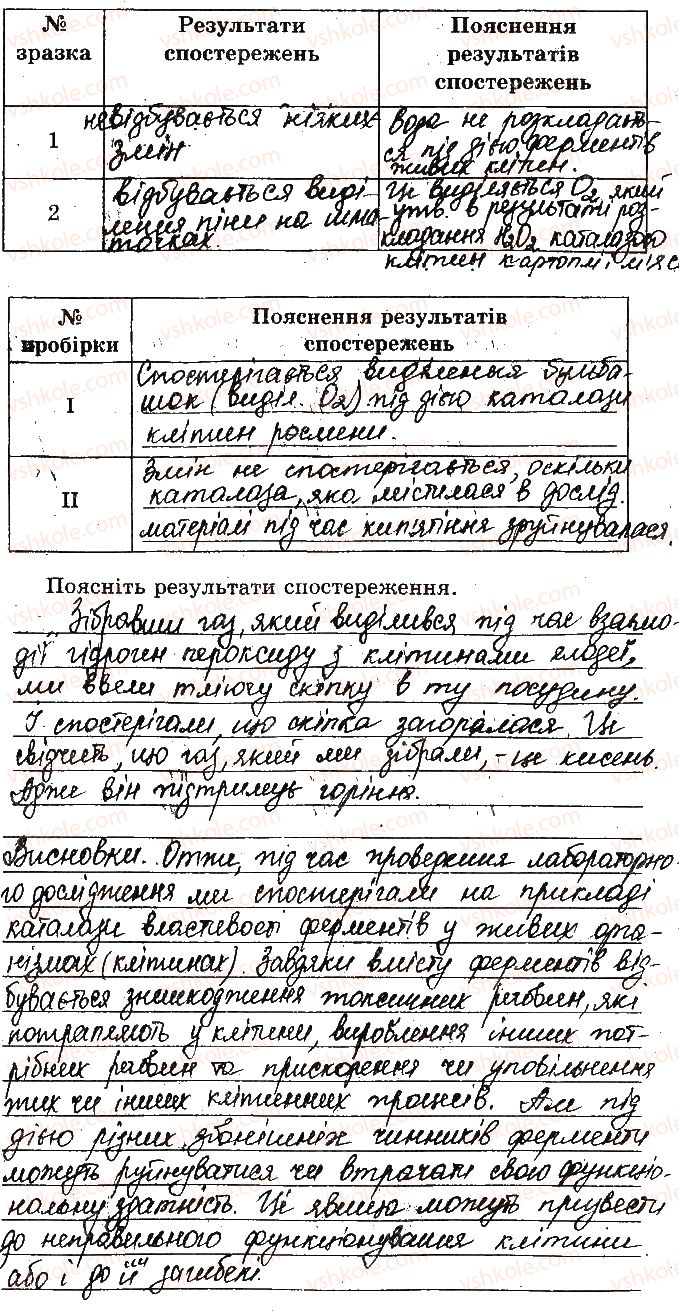 № зразка
Результати спостережень
Пояснення результатів спостережень
1
не відбувається ніяких
змін
вода не розкладаєть-
ся під дією ферментів
живих клітин.
2
відбувається виді-
лення піни на шма-
точках.
Це виділяється O₂, який
утв. в результаті роз-
кладання H₂O₂ каталазою
клітин картоплі і м'яс
№ пробірки
Пояснення результатів спостережень
I
Спостерігається виділення бульба-
шок (виділ. O₂) під дією каталази
клітин рослини.
II
Змін не спостерігається, оскільки
каталаза, яка містилася в дослід.
матеріалі під час кип'ятіння зруйнувалася.
Поясніть результати спостереження.
Зібравши газ, який виділився під час взаємо-
дії гідроген пероксиду з клітинами елодеї,
ми ввели тліючу скіпку в ту посудину.
І спостерігали, що скіпка загоралася. Це
свідчить, що газ, який ми зібрали, - це кисень.
Адже він підтримує горіння.
Висновки. Отже, під час проведення лабораторно-
го дослідження ми спостерігали на прикладі
каталази властивості ферментів у живих орга-
нізмах (клітинах). Завдяки вмісту ферментів від-
бувається знешкодження токсичних речовин, які
потрапляють у клітини, вироблення інших пот-
рібних речовин та прискорення чи уповільнення
тих чи інших клітинних процесів. Але під
дією різних зовнішніх чинників ферменти
можуть руйнуватися чи втрачати свою функціо-
нальну здатність. Ці явища можуть призвести
до неправильного функціонування клітини
або і до її загибелі.
vshkole.com